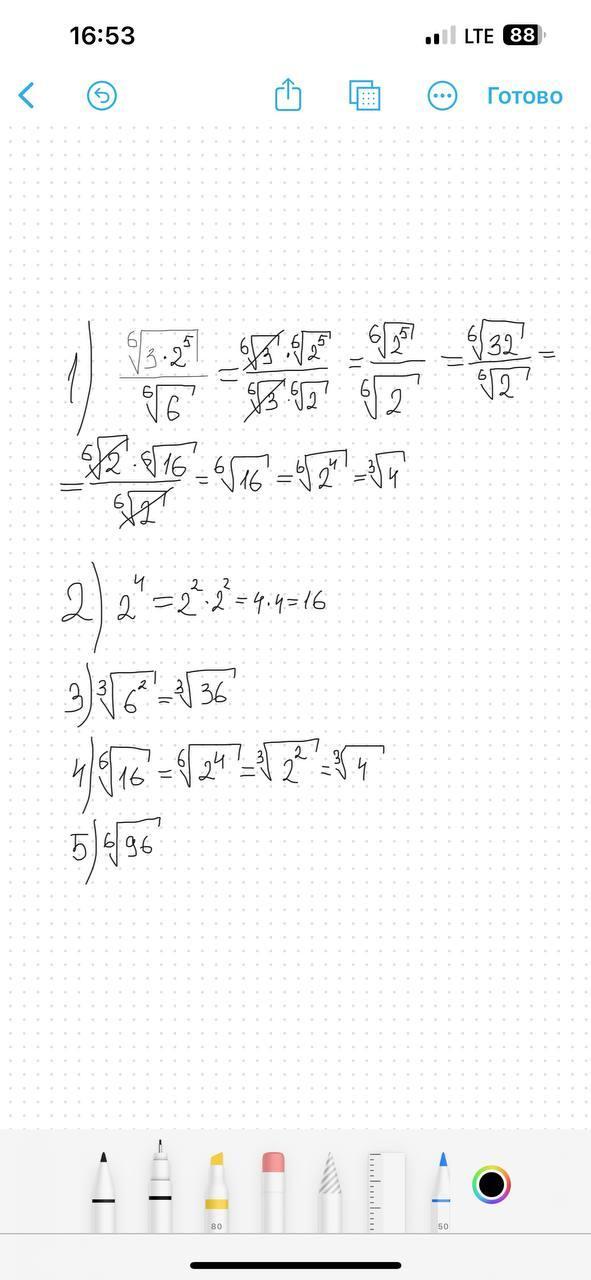 16:53 LTE 88
Готово
1) ⁶√(3·2⁵) / ⁶√6 = (⁶√3 · ⁶√2⁵) / (⁶√3 · ⁶√2) = ⁶√2⁵ / ⁶√2 = ⁶√32 / ⁶√2 =
= (⁶√2 · ⁶√16) / ⁶√2 = ⁶√16 = ⁶√2⁴ = ³√4
2) 2⁴ = 2² · 2² = 4 · 4 = 16
3) ³√6² = ³√36
4) ⁶√16 = ⁶√2⁴ = ³√2² = ³√4
5) ⁶√96
80 50